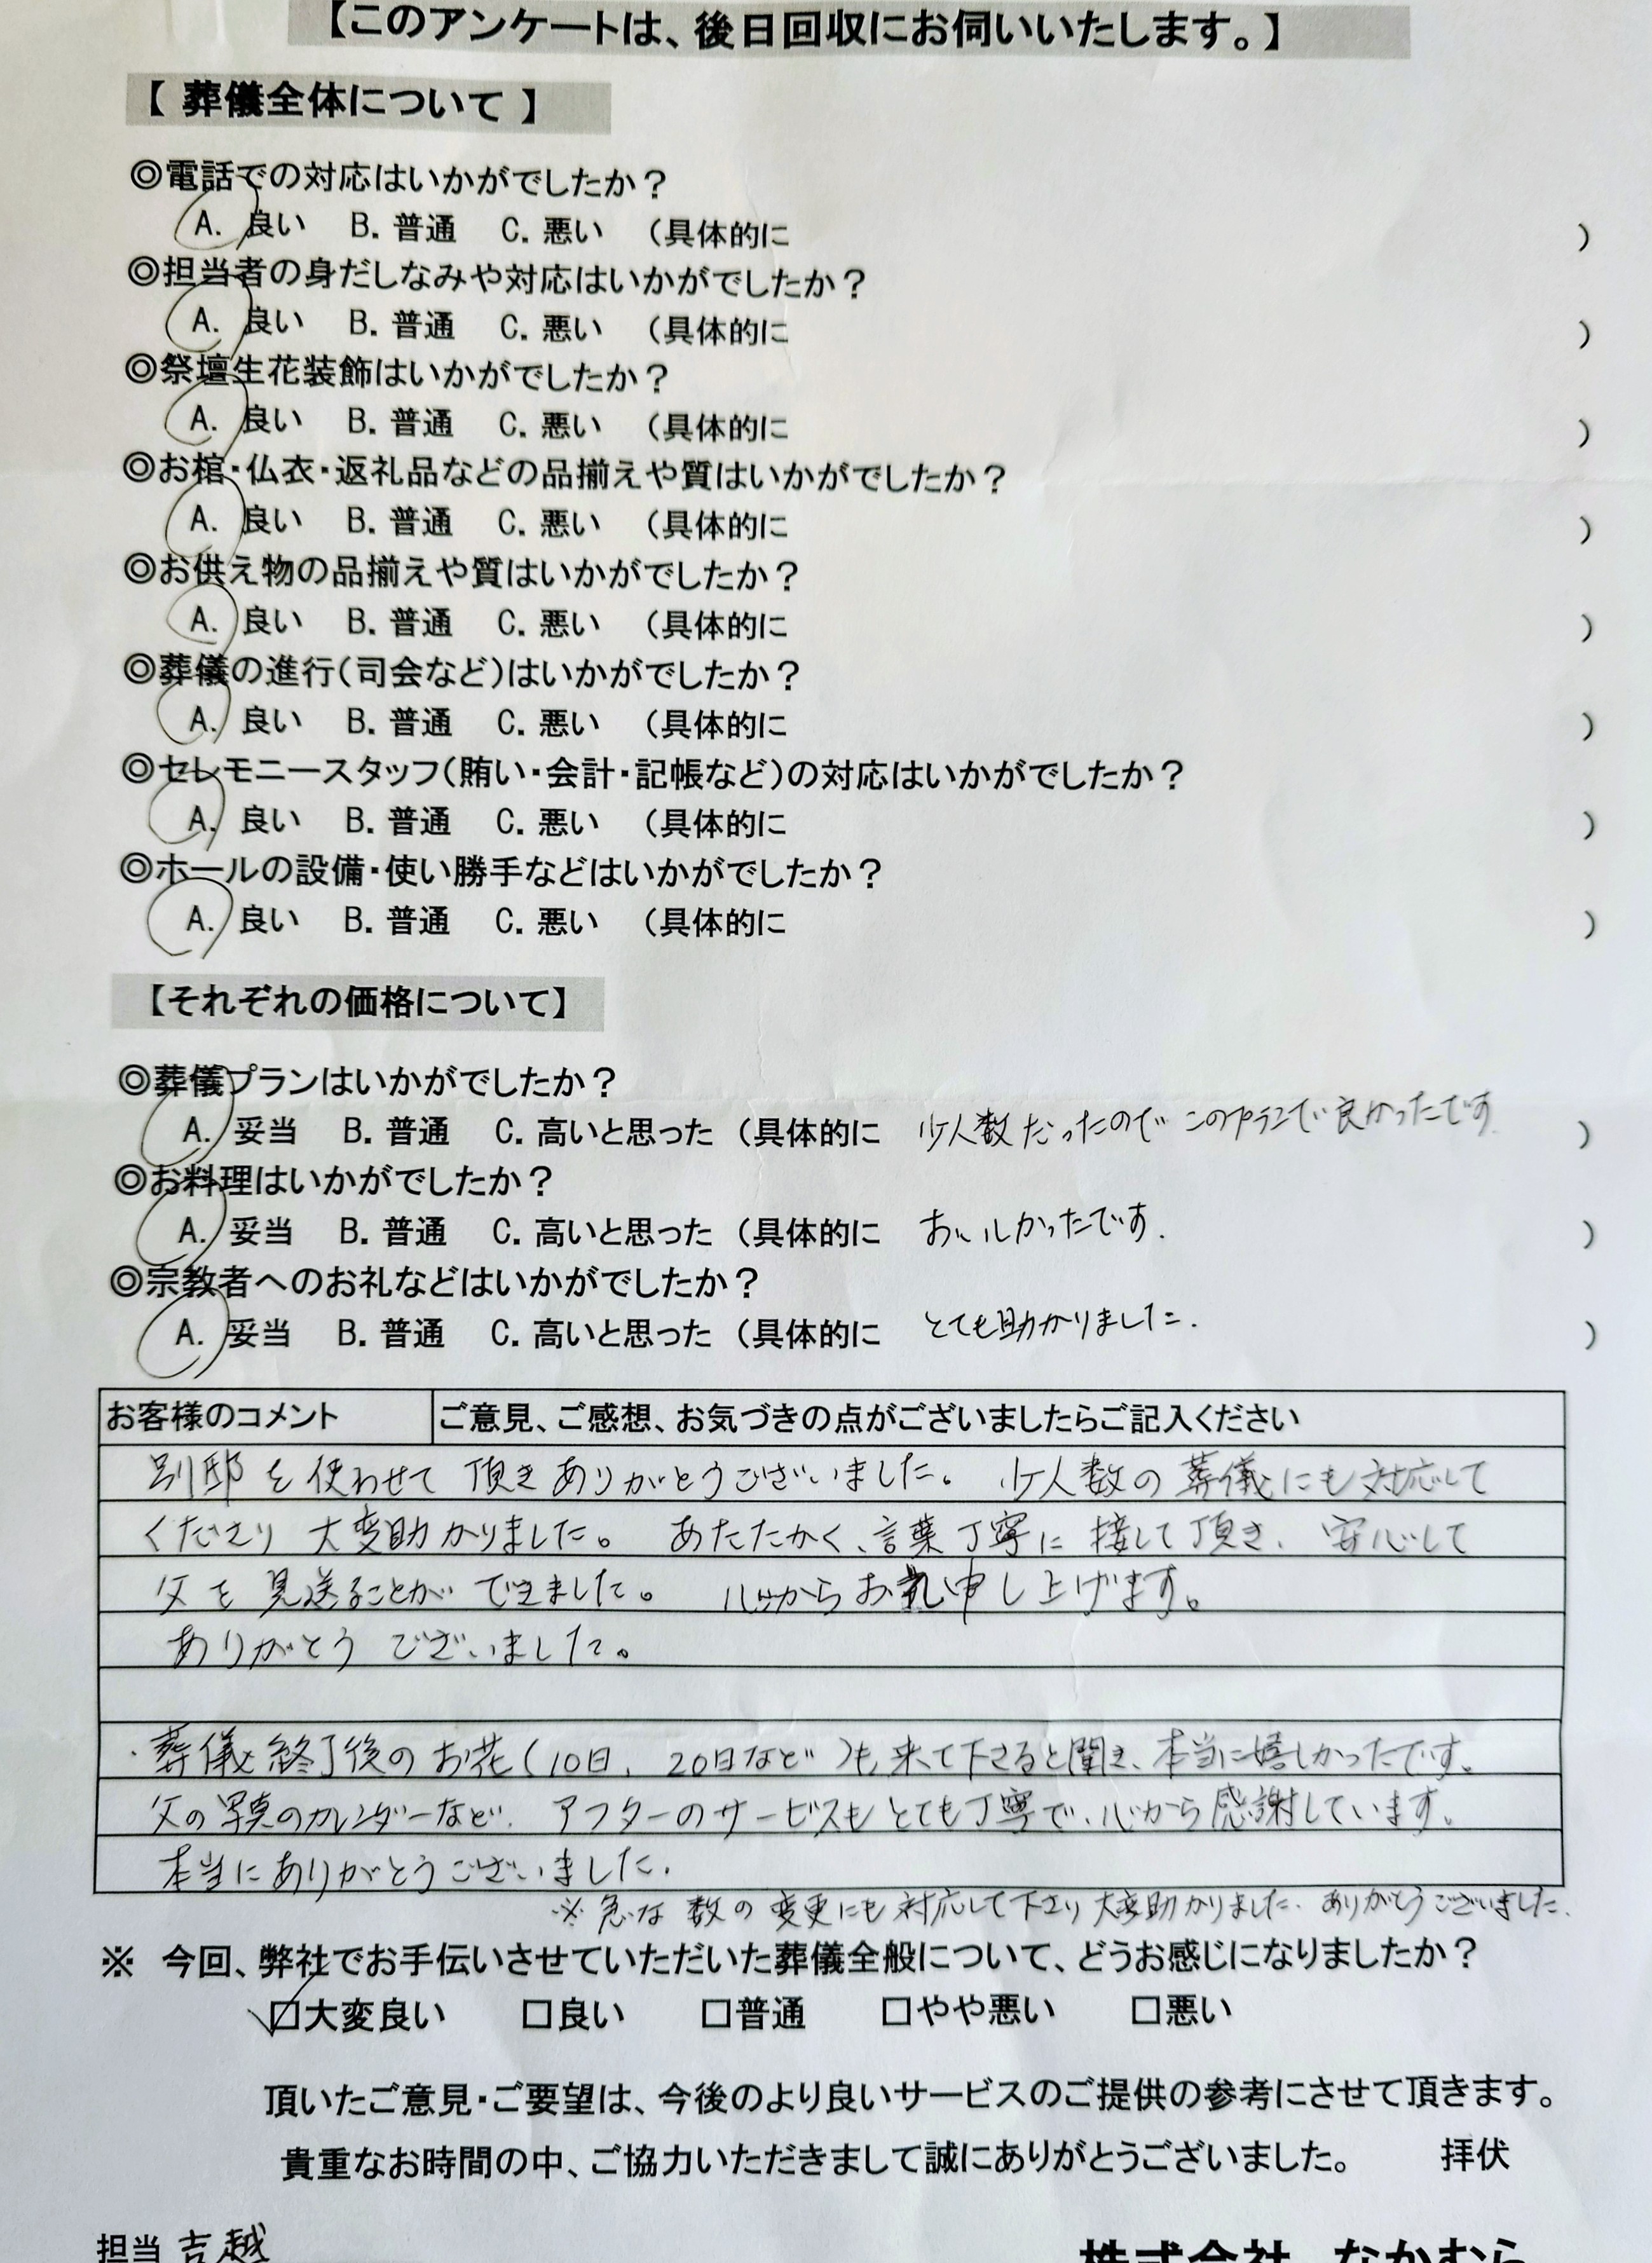 【このアンケートは、後日回収にお伺いいたします。】
【 葬儀全体について 】
◎電話での対応はいかがでしたか？
A. 良い B. 普通 C. 悪い （具体的に ）
◎担当者の身だしなみや対応はいかがでしたか？
A. 良い B. 普通 C. 悪い （具体的に ）
◎祭壇生花装飾はいかがでしたか？
A. 良い B. 普通 C. 悪い （具体的に ）
◎お棺・仏衣・返礼品などの品揃えや質はいかがでしたか？
A. 良い B. 普通 C. 悪い （具体的に ）
◎お供え物の品揃えや質はいかがでしたか？
A. 良い B. 普通 C. 悪い （具体的に ）
◎葬儀の進行（司会など）はいかがでしたか？
A. 良い B. 普通 C. 悪い （具体的に ）
◎セレモニースタッフ（賄い・会計・記帳など）の対応はいかがでしたか？
A. 良い B. 普通 C. 悪い （具体的に ）
◎ホールの設備・使い勝手などはいかがでしたか？
A. 良い B. 普通 C. 悪い （具体的に ）
【それぞれの価格について】
◎葬儀プランはいかがでしたか？
A. 妥当 B. 普通 C. 高いと思った （具体的に 少人数だったのでこのプランで良かったです ）
◎お料理はいかがでしたか？
A. 妥当 B. 普通 C. 高いと思った （具体的に おいしかったです. ）
◎宗教者へのお礼などはいかがでしたか？
A. 妥当 B. 普通 C. 高いと思った （具体的に とても助かりました. ）
お客様のコメント ご意見、ご感想、お気づきの点がございましたらご記入ください
別邸を使わせて頂きありがとうございました。 少人数の葬儀にも対応して
くださり大変助かりました。 あたたかく、言葉丁寧に接して頂き、安心して
父を見送ることができました。 心からお礼申し上げます。
ありがとうございました。
・葬儀終了後のお花（10日、20日など）も来て下さると聞き、本当に嬉しかったです。
父の写真のカレンダーなど、アフターのサービスもとても丁寧で、心から感謝しています。
本当にありがとうございました.
※急な数の変更にも対応して下さり大変助かりました. ありがとうございました.
※ 今回、弊社でお手伝いさせていただいた葬儀全般について、どうお感じになりましたか？
☑大変良い □良い □普通 □やや悪い □悪い
頂いたご意見・ご要望は、今後のより良いサービスのご提供の参考にさせて頂きます。
貴重なお時間の中、ご協力いただきまして誠にありがとうございました。 拝伏
担当 吉越 株式会社 なかむら